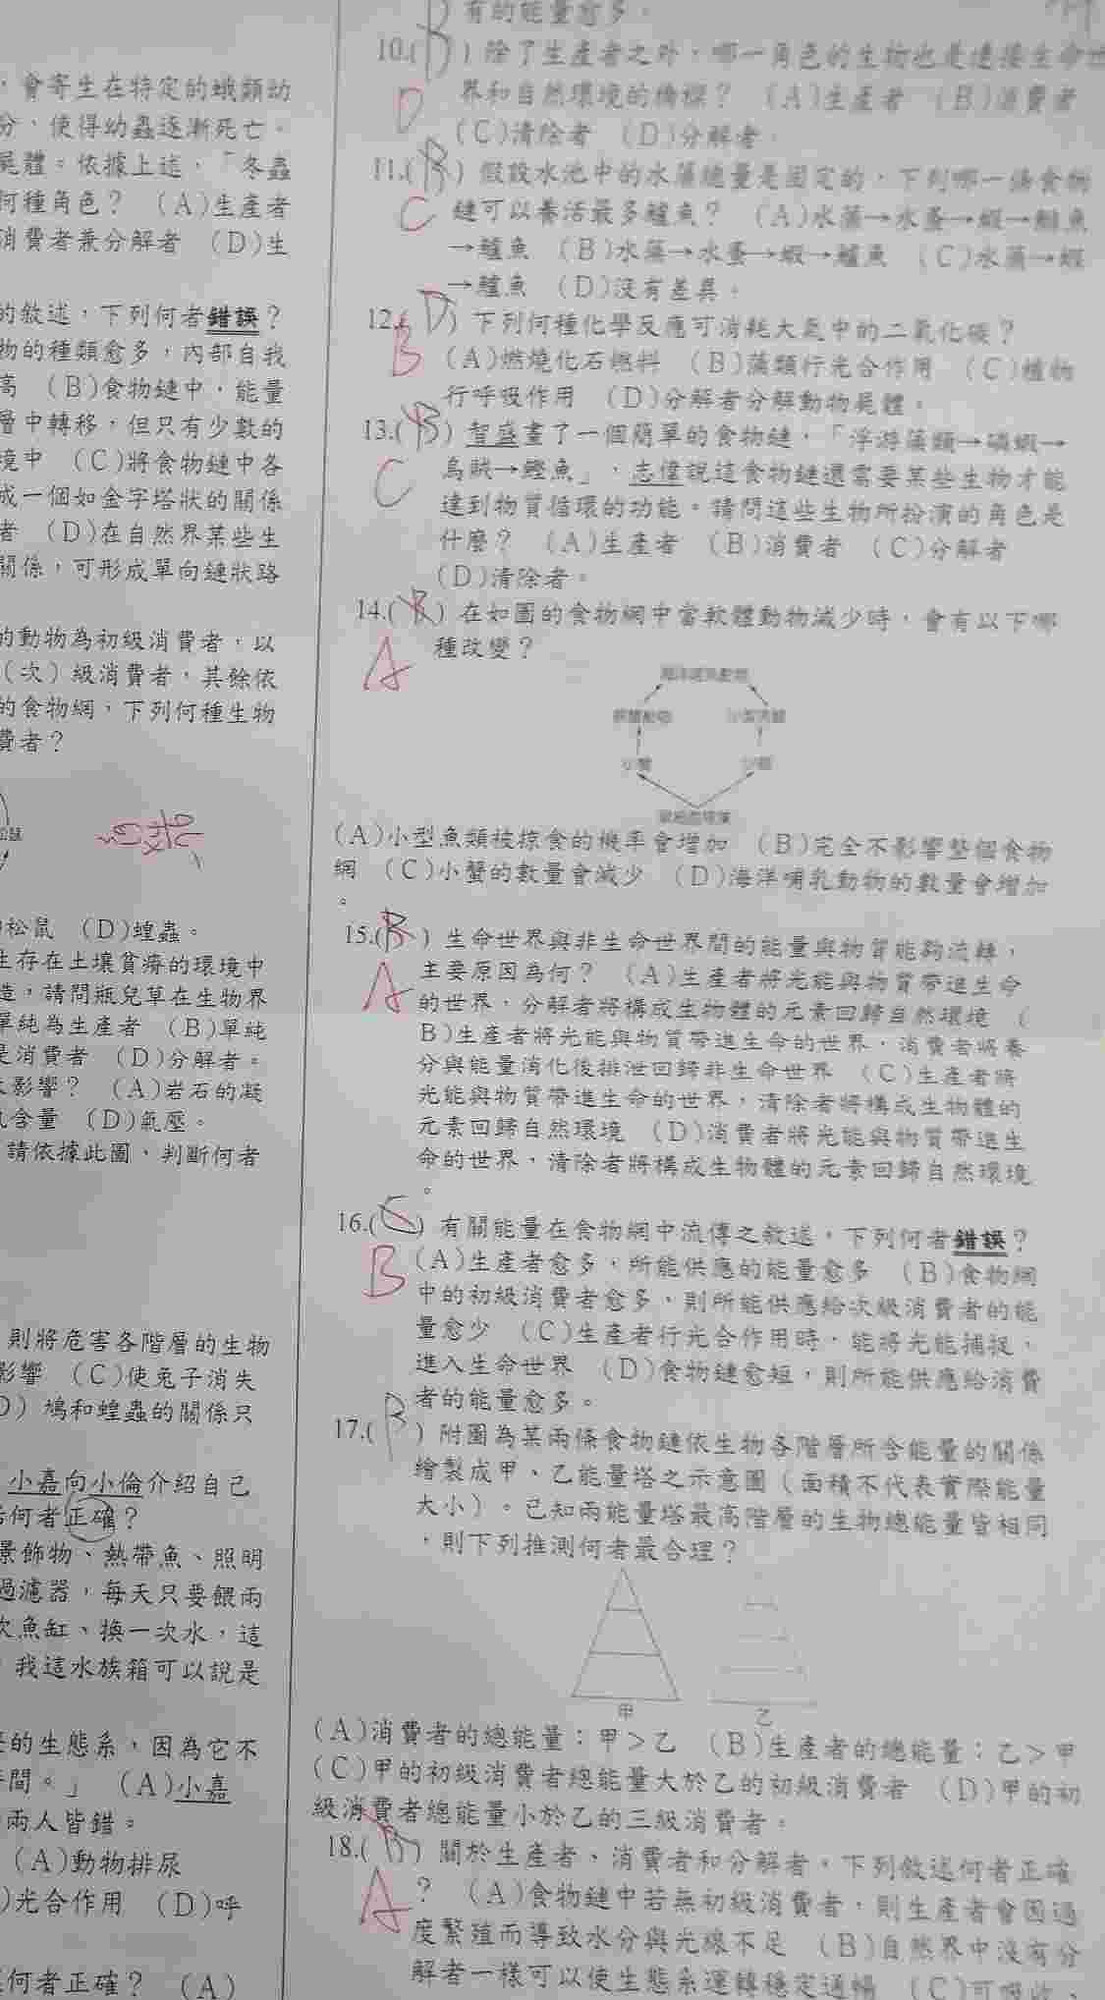 ，會寄生在特定的蛾類幼
分，使得幼蟲逐漸死亡。
屍體。依據上述，「冬蟲
何種角色？ (A)生產者
消費者兼分解者 (D)生
的敘述，下列何者錯誤？
物的種類愈多，內部自我
高 (B)食物鏈中，能量
層中轉移，但只有少數的
境中 (C)將食物鏈中各
成一個如金字塔狀的關係
者 (D)在自然界某些生
關係，可形成單向鏈狀路
的動物為初級消費者，以
（次）級消費者，其餘依
的食物網，下列何種生物
費者？
松鼠 (D)蝗蟲。
生存在土壤貧瘠的環境中
造，請問瓶兒草在生物界
單純為生產者 (B)單純
是消費者 (D)分解者。
影響？ (A)岩石的凝
含量 (D)氣壓。
請依據此圖，判斷何者
則將危害各階層的生物
影響 (C)使兔子消失
D) 鳩和蝗蟲的關係只
小嘉向小倫介紹自己
何者正確？
景飾物、熱帶魚、照明
過濾器，每天只要餵兩
次魚缸、換一次水，這
我這水族箱可以說是
的生態系，因為它不
間。」 (A)小嘉
兩人皆錯。
(A)動物排尿
)光合作用 (D)呼
何者正確？ (A)
有的能量愈多。
10.(B) 除了生產者之外，哪一角色的生物也是連接生命世
D 界和自然環境的橋樑？ (A)生產者 (B)消費者
(C)清除者 (D)分解者。
11.(B) 假設水池中的水藻總量是固定的，下列哪一條食物
C 鏈可以養活最多鱸魚？ (A)水藻→水蚤→蝦→鯽魚
→鱸魚 (B)水藻→水蚤→蝦→鱸魚 (C)水藻→蝦
→鱸魚 (D)沒有差異。
12.(D) 下列何種化學反應可消耗大氣中的二氧化碳？
B (A)燃燒化石燃料 (B)藻類行光合作用 (C)植物
行呼吸作用 (D)分解者分解動物屍體。
13.(B) 智盛畫了一個簡單的食物鏈，「浮游藻類→磷蝦→
C 烏賊→鰹魚」，志偉說這食物鏈還需要某些生物才能
達到物質循環的功能。請問這些生物所扮演的角色是
什麼？ (A)生產者 (B)消費者 (C)分解者
(D)清除者。
14.(B) 在如圖的食物網中當軟體動物減少時，會有以下哪
A 種改變？
海洋哺乳動物
軟體動物 小型魚類
小蟹 小蝦
甲
乙
(A)小型魚類被掠食的機率會增加 (B)完全不影響整個食物
網 (C)小蟹的數量會減少 (D)海洋哺乳動物的數量會增加
。
15.(B) 生命世界與非生命世界間的能量與物質能夠流轉，
A 主要原因為何？ (A)生產者將光能與物質帶進生命
的世界，分解者將構成生物體的元素回歸自然環境 (
B)生產者將光能與物質帶進生命的世界，消費者將養
分與能量消化後排泄回歸非生命世界 (C)生產者將
光能與物質帶進生命的世界，清除者將構成生物體的
元素回歸自然環境 (D)消費者將光能與物質帶進生
命的世界，清除者將構成生物體的元素回歸自然環境
。
16.(C) 有關能量在食物網中流傳之敘述，下列何者錯誤？
B (A)生產者愈多，所能供應的能量愈多 (B)食物網
中的初級消費者愈多，則所能供應給次級消費者的能
量愈少 (C)生產者行光合作用時，能將光能捕捉，
進入生命世界 (D)食物鏈愈短，則所能供應給消費
者的能量愈多。
17.(B) 附圖為某兩條食物鏈依生物各階層所含能量的關係
繪製成甲、乙能量塔之示意圖（面積不代表實際能量
大小）。已知兩能量塔最高階層的生物總能量皆相同
，則下列推測何者最合理？
(A)消費者的總能量：甲＞乙 (B)生產者的總能量：乙＞甲
(C)甲的初級消費者總能量大於乙的初級消費者 (D)甲的初
級消費者總能量小於乙的三級消費者。
18.(B) 關於生產者、消費者和分解者，下列敘述何者正確
A ？ (A)食物鏈中若無初級消費者，則生產者會因過
度繁殖而導致水分與光線不足 (B)自然界中沒有分
解者一樣可以使生態系運轉穩定通暢 (C)可吸收、